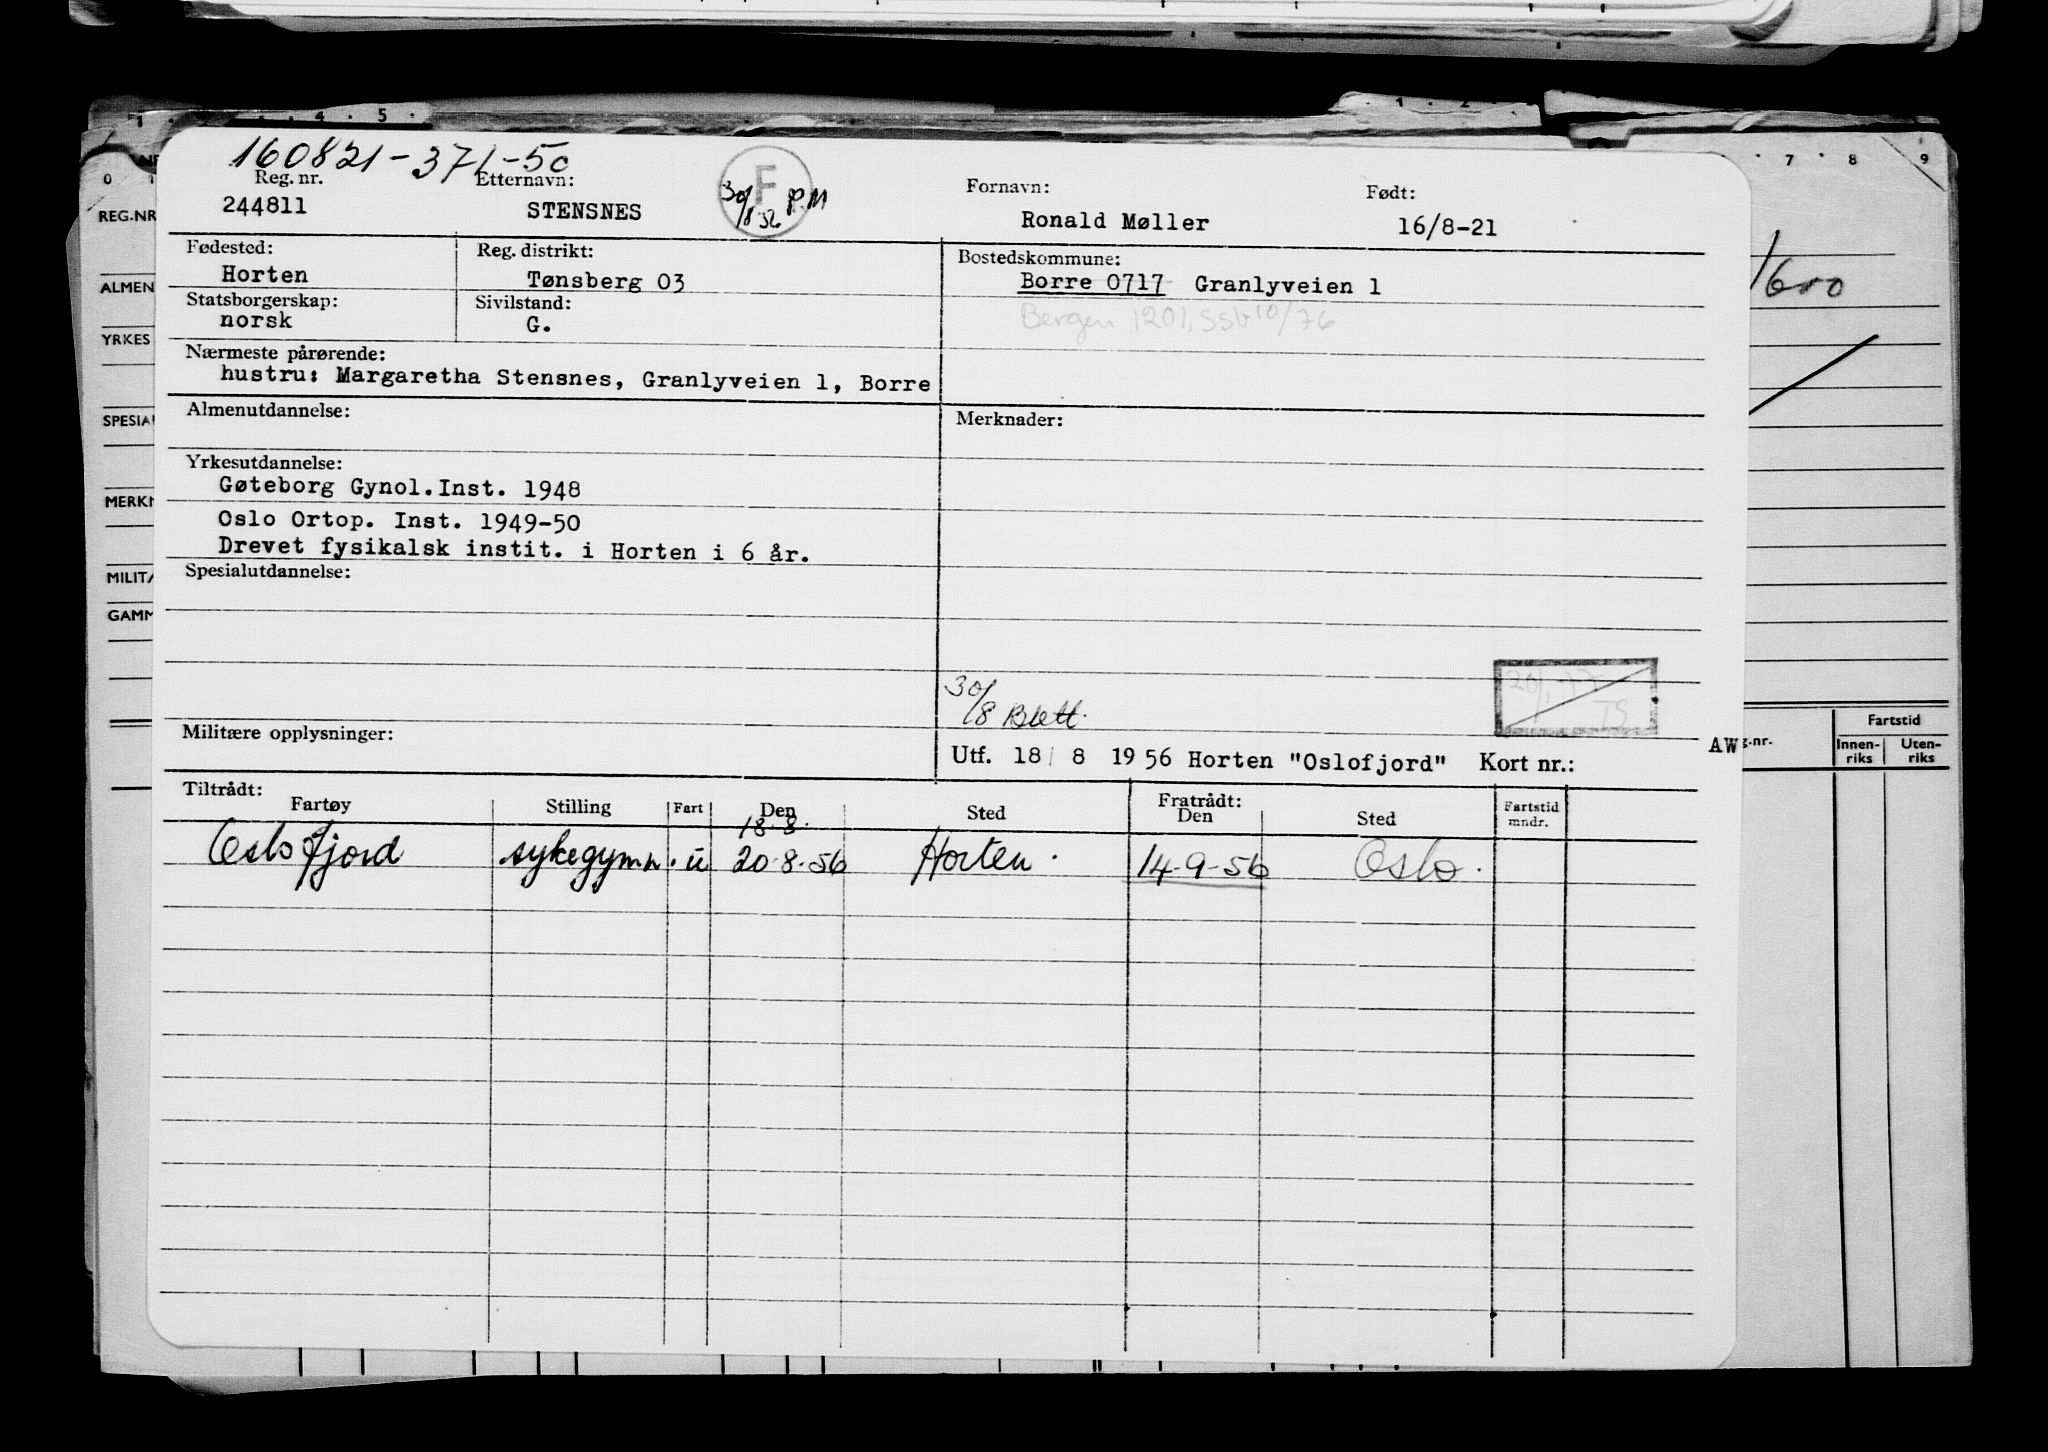 4 5 1 2
7 8 9
0 1
160821-371-50
Reg. nr. Etternavn: Fornavn: Født:
244811 STENSNES F 30/8-56 P.M Ronald Møller 16/8-21
REG.NR
Fødested: Reg. distrikt: Bostedskommune:
Horten Tønsberg 03 Borre 0717 Granlyveien 1
ALMEN
Statsborgerskap: Sivilstand:
norsk G. Bergen 1201, SSb 10/76
YRKES
Nærmeste pårørende:
hustru: Margaretha Stensnes, Granlyveien 1, Borre
SPESIAL
Almenutdannelse: Merknader:
Yrkesutdannelse:
Gøteborg Gynol. Inst. 1948
MERKN
Oslo Ortop. Inst. 1949-50
Drevet fysikalsk instit. i Horten i 6 år.
MILITÆ
Spesialutdannelse:
GAMM
30/8 Blett.
TS
Militære opplysninger:
Utf. 18/ 8 1956 Horten "Oslofjord" Kort nr.: AW
g.nr. Fartstid
Innen-riks Uten-riks
Tiltrådt: Fratrådt:
Fartøy Stilling Fart Den Sted Den Sted Fartstid mndr.
18-8.
Oslofjord sykegymn. u 20-8-56 Horten. 14-9-56 Oslo.